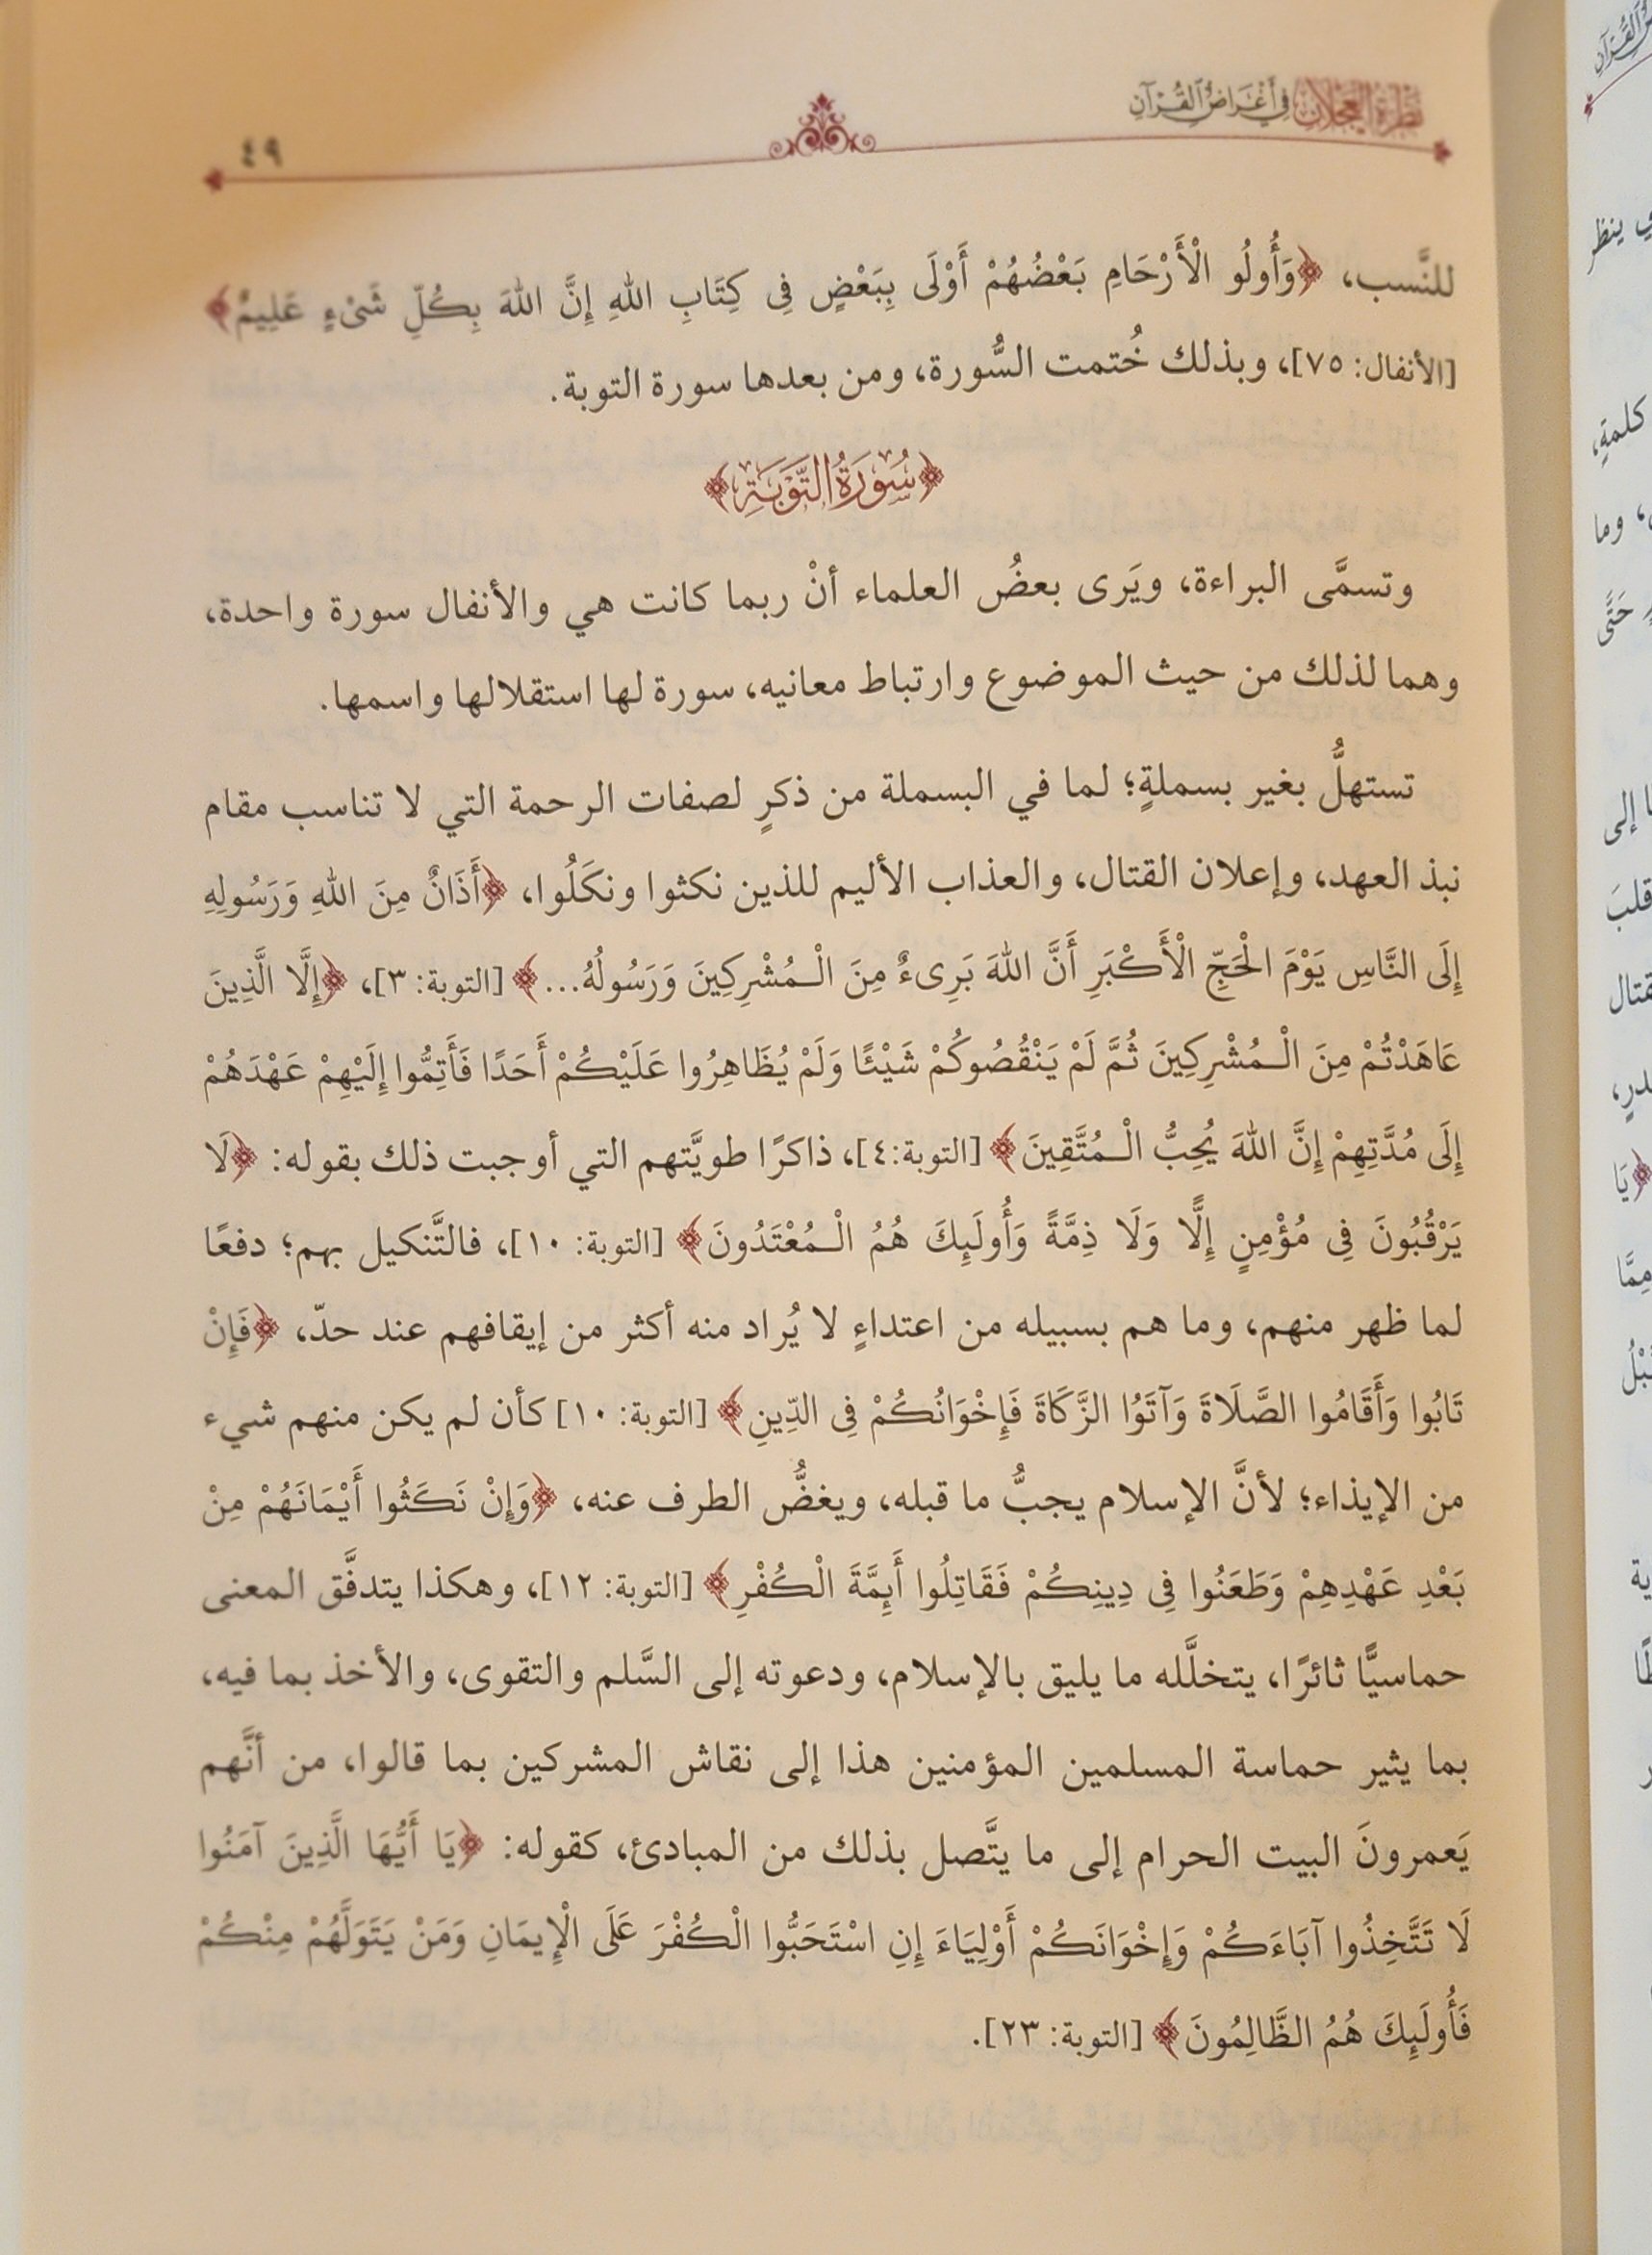 نظرة العجلان في أغراض القرآن
٤٩
للنَّسب، ﴿وَأُولُو الْأَرْحَامِ بَعْضُهُمْ أَوْلَى بِبَعْضٍ فِى كِتَابِ اللهِ إِنَّ اللهَ بِكُلِّ شَىْءٍ عَلِيمٌ﴾
[الأنفال: ٧٥]، وبذلك خُتمت السُّورة، ومن بعدها سورة التوبة.
﴿سُورَةُ التَّوْبَةِ﴾
وتسمَّى البراءة، ويَرى بعضُ العلماء أنْ ربما كانت هي والأنفال سورة واحدة،
وهما لذلك من حيث الموضوع وارتباط معانيه، سورة لها استقلالها واسمها.
تستهلُّ بغير بسملةٍ؛ لما في البسملة من ذكرٍ لصفات الرحمة التي لا تناسب مقام
نبذ العهد، وإعلان القتال، والعذاب الأليم للذين نكثوا ونكَلُوا، ﴿أَذَانٌ مِنَ اللهِ وَرَسُولِهِ
إِلَى النَّاسِ يَوْمَ الْحَجِّ الْأَكْبَرِ أَنَّ اللهَ بَرِىءٌ مِنَ الْـمُشْرِكِينَ وَرَسُولُهُ...﴾ [التوبة: ٣]، ﴿إِلَّا الَّذِينَ
عَاهَدْتُمْ مِنَ الْـمُشْرِكِينَ ثُمَّ لَمْ يَنْقُصُوكُمْ شَيْئًا وَلَمْ يُظَاهِرُوا عَلَيْكُمْ أَحَدًا فَأَتِمُّوا إِلَيْهِمْ عَهْدَهُمْ
إِلَى مُدَّتِهِمْ إِنَّ اللهَ يُحِبُّ الْـمُتَّقِينَ﴾ [التوبة:٤]، ذاكرًا طويَّتهم التي أوجبت ذلك بقوله: ﴿لَا
يَرْقُبُونَ فِى مُؤْمِنٍ إِلًّا وَلَا ذِمَّةً وَأُولَئِكَ هُمُ الْـمُعْتَدُونَ﴾ [التوبة: ١٠]، فالتَّنكيل بهم؛ دفعًا
لما ظهر منهم، وما هم بسبيله من اعتداءٍ لا يُراد منه أكثر من إيقافهم عند حدّ، ﴿فَإِنْ
تَابُوا وَأَقَامُوا الصَّلَاةَ وَآتَوُا الزَّكَاةَ فَإِخْوَانُكُمْ فِى الدِّينِ﴾ [التوبة: ١٠] كأن لم يكن منهم شيء
من الإيذاء؛ لأنَّ الإسلام يجبُّ ما قبله، ويغضُّ الطرف عنه، ﴿وَإِنْ نَكَثُوا أَيْمَانَهُمْ مِنْ
بَعْدِ عَهْدِهِمْ وَطَعَنُوا فِى دِينِكُمْ فَقَاتِلُوا أَئِمَّةَ الْكُفْرِ﴾ [التوبة: ١٢]، وهكذا يتدفَّق المعنى
حماسيًّا ثائرًا، يتخلَّله ما يليق بالإسلام، ودعوته إلى السَّلم والتقوى، والأخذ بما فيه،
بما يثير حماسة المسلمين المؤمنين هذا إلى نقاش المشركين بما قالوا، من أنَّهم
يَعمرونَ البيت الحرام إلى ما يتَّصل بذلك من المبادئ، كقوله: ﴿يَا أَيُّهَا الَّذِينَ آمَنُوا
لَا تَتَّخِذُوا آبَاءَكُمْ وَإِخْوَانَكُمْ أَوْلِيَاءَ إِنِ اسْتَحَبُّوا الْكُفْرَ عَلَى الْإِيمَانِ وَمَنْ يَتَوَلَّهُمْ مِنْكُمْ
فَأُولَئِكَ هُمُ الظَّالِمُونَ﴾ [التوبة: ٢٣].